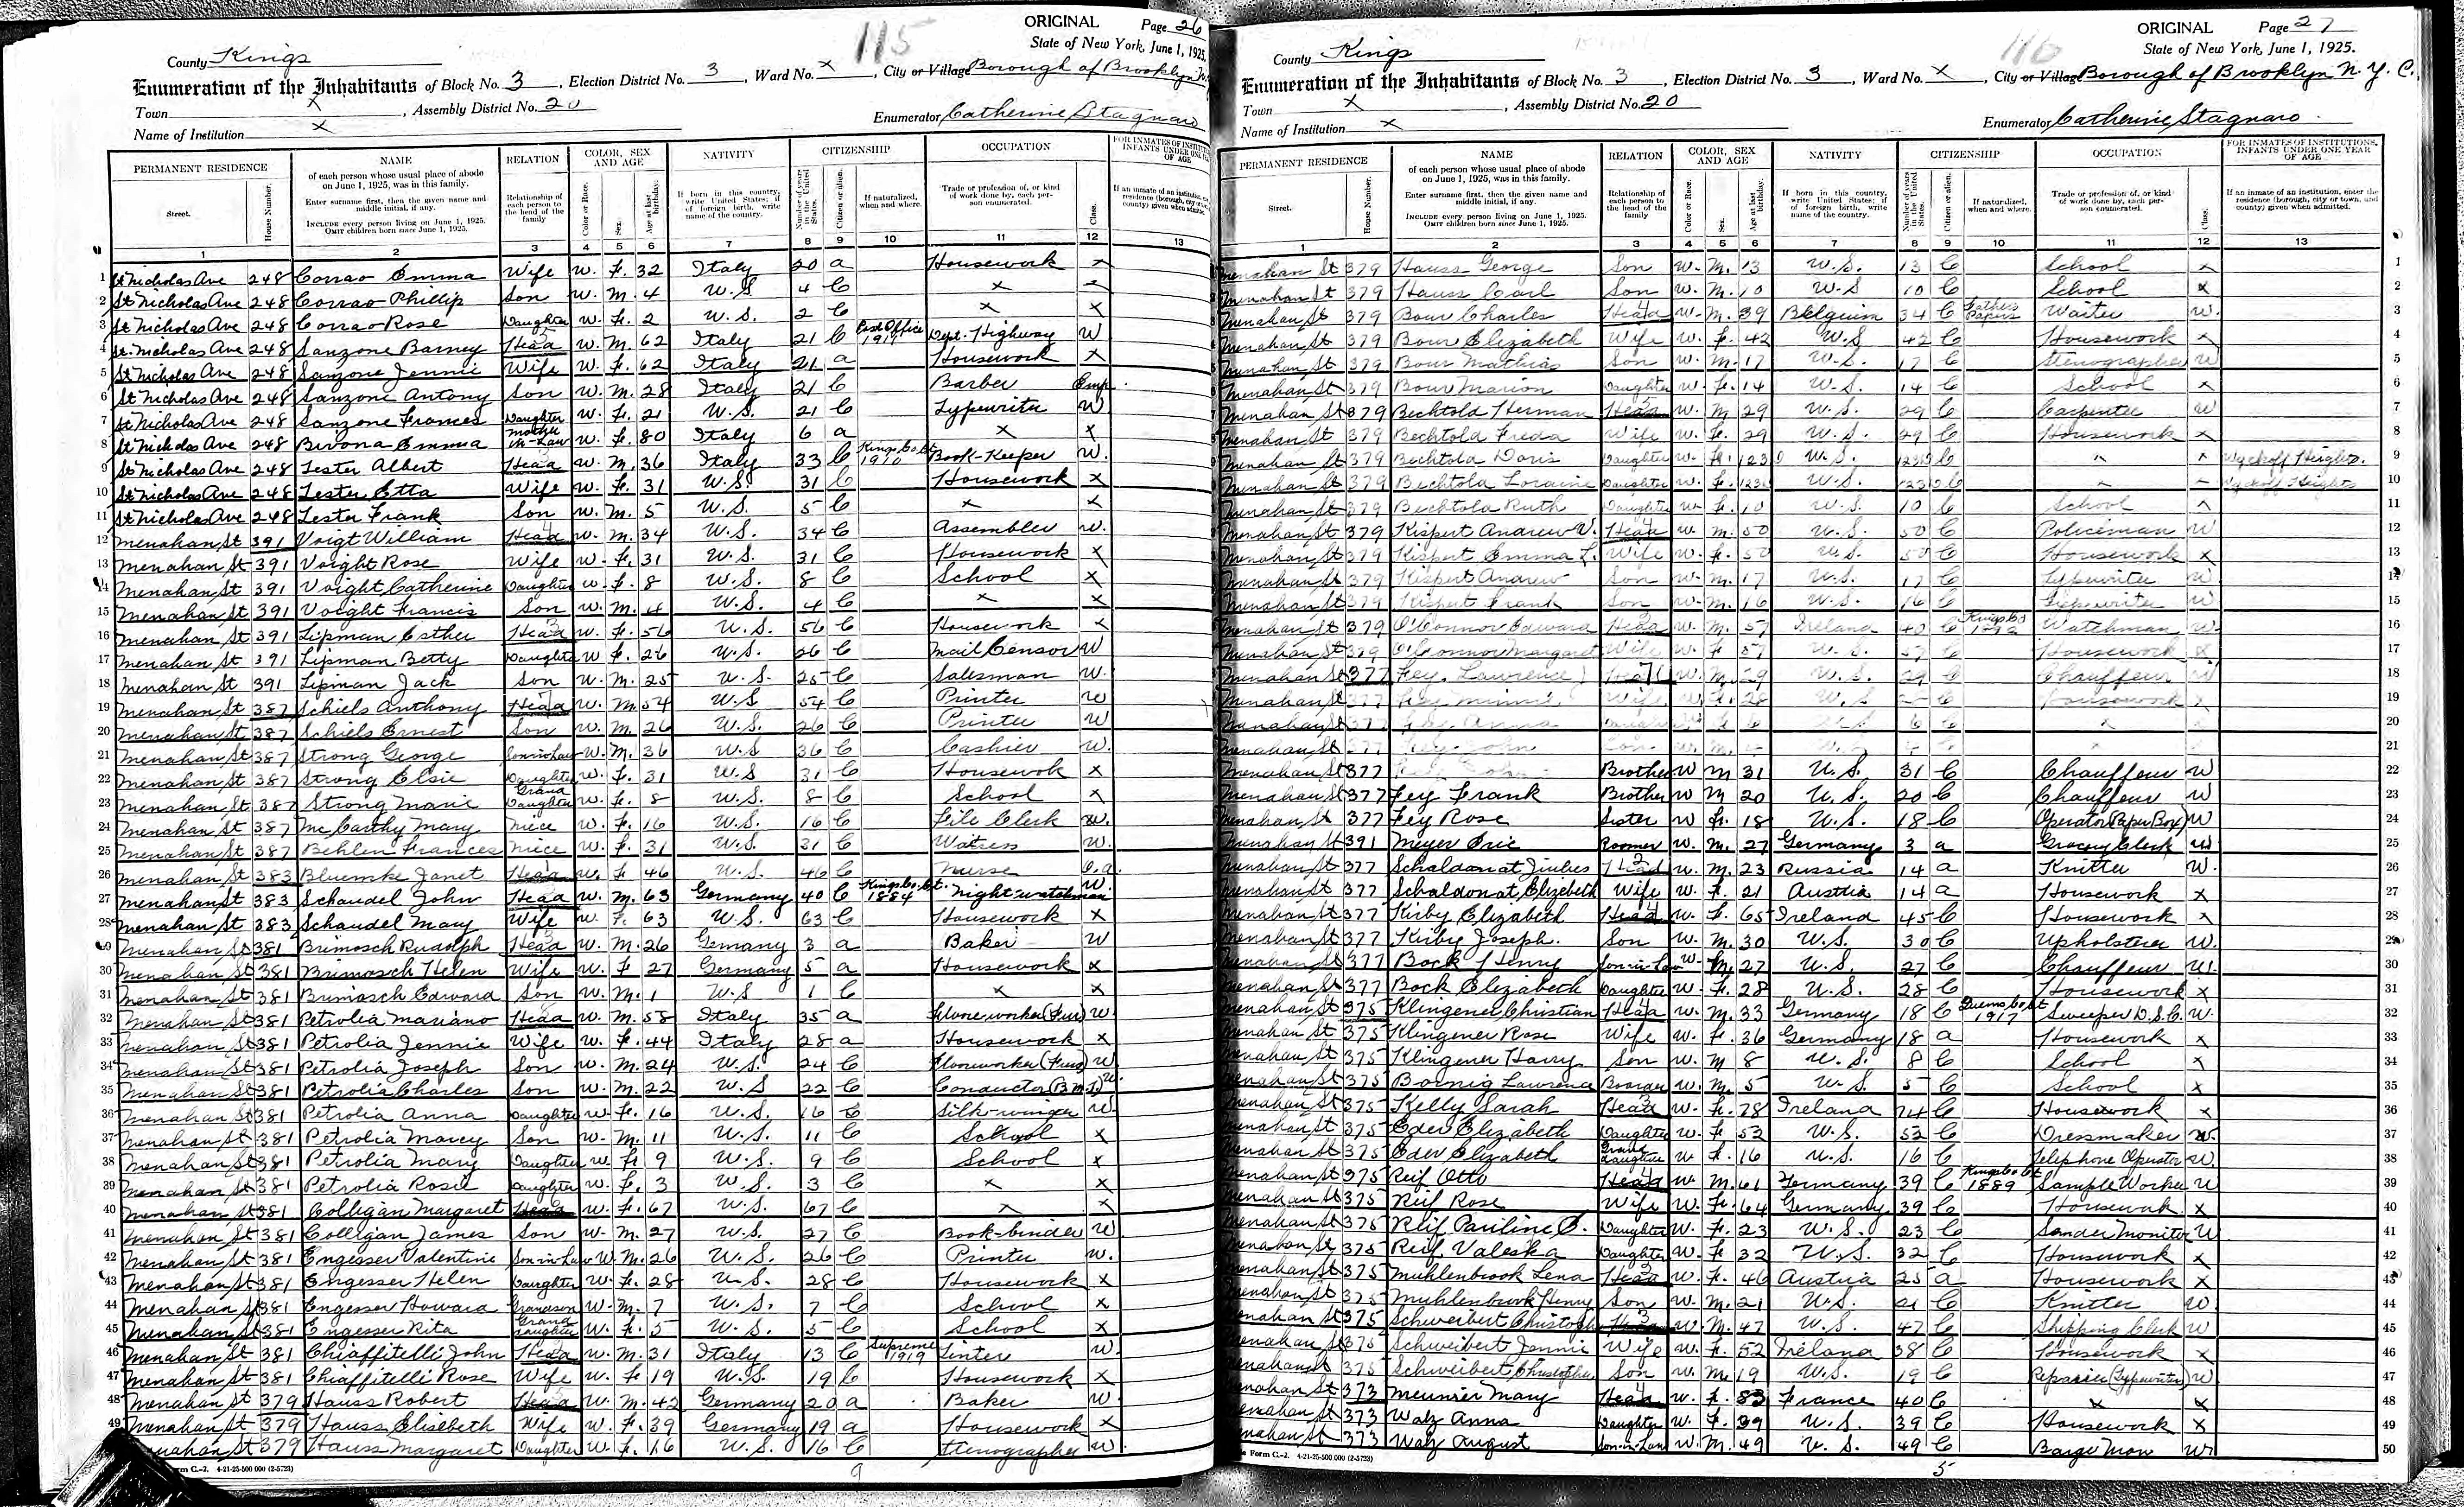 ORIGINAL Page 26
115
State of New York, June 1, 1925.
County Kings
Enumeration of the Inhabitants of Block No. 3, Election District No. 3, Ward No. x, City or Village Borough of Brooklyn N.Y.
Town x, Assembly District No. 20
Name of Institution x
Enumerator Catherine Stagnaro
PERMANENT RESIDENCE NAME RELATION COLOR, SEX AND AGE NATIVITY CITIZENSHIP OCCUPATION
Street. House Number. of each person whose usual place of abode on June 1, 1925, was in this family. Enter surname first, then the given name and middle initial, if any. INCLUDE every person living on June 1, 1925. OMIT children born since June 1, 1925. Relationship of each person to the head of the family Color or Race. Sex. Age at last birthday. If born in this country, write United States; if of foreign birth, write name of the country. Number of years in the United States. Citizen or alien. If naturalized, when and where. Trade or profession of, or kind of work done by, each person enumerated. Class.
1 2 3 4 5 6 7 8 9 10 11 12 13
1 St Nicholas Ave 248 Corrao Emma Wife w. F. 32 Italy 20 a Housework x
2 St Nicholas Ave 248 Corrao Phillip Son w. m. 4 U.S. 4 C x x
3 St Nicholas Ave 248 Corrao Rose Daughter w. F. 2 U.S. 2 C x x
4 St. Nicholas Ave 248 Sanzone Barney Head w. M. 62 Italy 21 C 1919 Dept. Highway W
5 St Nicholas Ave 248 Sanzone Jennie Wife w. F. 62 Italy 21 a Housework x
6 St Nicholas Ave 248 Sanzone Antony Son w. M. 28 Italy 21 C Barber Emp.
7 St Nicholas Ave 248 Sanzone Frances Daughter w. F. 21 U.S. 21 C Typewriter W
8 St Nicholas Ave 248 Bivona Emma mother in-Law w. F. 80 Italy 6 a x x
9 St Nicholas Ave 248 Lester Albert Head w. M. 36 Italy 33 C Kings Co. Ct. 1910 Book-Keeper W.
10 St Nicholas Ave 248 Lester Etta Wife w. F. 31 U.S. 31 C Housework x
11 St Nicholas Ave 248 Lester Frank Son w. M. 5 U.S. 5 C x x
12 Menahan St 391 Voigt William Head w. M. 34 U.S. 34 C Assembler w.
13 Menahan St 391 Voight Rose Wife w. F. 31 U.S. 31 C Housework x
14 Menahan St 391 Voight Catherine Daughter w. F. 8 U.S. 8 C School x
15 Menahan St 391 Voight Francis Son w. M. 4 U.S. 4 C x x
16 Menahan St 391 Lipman Esther Head w. F. 56 U.S. 56 C Housework x
17 Menahan St 391 Lipman Betty Daughter W F. 26 U.S. 26 C Mail Censor W
18 Menahan St 391 Lipman Jack Son W. M. 25 U.S. 25 C Salesman W.
19 Menahan St 387 Schiels Anthony Head w. M. 54 U.S 54 C Printer W
20 Menahan St 387 Schiels Ernest Son w. M. 26 U.S. 26 C Printer W
21 Menahan St 387 Strong George Son-in-Law W. M. 36 U.S 36 C Cashier W.
22 Menahan St 387 Strong Elsie Daughter w. F. 31 U.S 31 C Housework x
23 Menahan St 387 Strong Marie Grand Daughter w. F. 8 U.S. 8 C School x
24 Menahan St 387 McCarthy Mary Niece w. F. 16 U.S. 16 C File Clerk w.
25 Menahan St 387 Behlen Frances Niece w. F. 31 U.S. 31 C Waitress W.
26 Menahan St 383 Bluemke Janet Head w. F 46 U.S 46 C Nurse O.a.
27 Menahan St 383 Schaudel John Head w. M. 63 Germany 40 C Kings Co. Ct. 1884 Night-watchman W.
28 Menahan St 383 Schaudel Mary Wife w. F. 63 U.S. 63 C Housework x
29 Menahan St 381 Brimosch Rudolph Head W. M. 26 Germany 3 a Baker W
30 Menahan St 381 Brimosch Helen Wife w. F 27 Germany 5 a Housework x
31 Menahan St 381 Brimosch Edward Son w. M. 1 U.S 1 C x x
32 Menahan St 381 Petrolia Mariano Head w. M. 58 Italy 35 a W
33 Menahan St 381 Petrolia Jennie Wife w. F. 44 Italy 28 a Housework x
34 Menahan St 381 Petrolia Joseph Son w. M. 24 U.S. 24 C W
35 Menahan St 381 Petrolia Charles Son w. M. 22 U.S 22 C Conductor (B.M.T.) W.
36 Menahan St 381 Petrolia Anna Daughter w. F. 16 U.S. 16 C Silk-winder W.
37 Menahan St 381 Petrolia Marcy Son w. M. 11 U.S. 11 C School x
38 Menahan St 381 Petrolia Mary Daughter w. F. 9 U.S. 9 C School x
39 Menahan St 381 Petrolia Rosie Daughter w. F. 3 U.S. 3 C x x
40 Menahan St 381 Colligan Margaret Head w. F. 67 U.S. 67 C x x
41 Menahan St 381 Colligan James Son W. M. 27 U.S. 27 C Book-binder W
42 Menahan St 381 Engesser Valentine Son-in-Law W. M. 26 U.S. 26 C Printer W.
43 Menahan St 381 Engesser Helen Daughter W. F. 28 U.S. 28 C Housework x
44 Menahan St 381 Engesser Howard Grandson W. M. 7 U.S. 7 C School x
45 Menahan St 381 Engesser Rita Grand daughter W. F. 5 U.S. 5 C School x
46 Menahan St 381 Chiaffitelli John Head w. M. 31 Italy 13 C Supreme 1919 W.
47 Menahan St 381 Chiaffitelli Rose Wife W. F 19 U.S. 19 C Housework x
48 Menahan St 379 Hauss Robert Head W. M. 42 Germany 20 a Baker W.
49 Menahan St 379 Hauss Elisebeth Wife W. F. 39 Germany 19 a Housework x
Menahan St 379 Hauss Margaret Daughter W. F. 16 U.S. 16 C Stenographer W
Form C.-2. 4-21-25-500 000 (2-5723)
9
ORIGINAL Page 27
116
State of New York, June 1, 1925.
County Kings
Enumeration of the Inhabitants of Block No. 3, Election District No. 3, Ward No. x, City or Village Borough of Brooklyn N.Y.C.
Town x, Assembly District No. 20
Name of Institution x
Enumerator Catherine Stagnaro
PERMANENT RESIDENCE NAME RELATION COLOR, SEX AND AGE NATIVITY CITIZENSHIP OCCUPATION FOR INMATES OF INSTITUTIONS, INFANTS UNDER ONE YEAR OF AGE
Street. House Number. of each person whose usual place of abode on June 1, 1925, was in this family. Enter surname first, then the given name and middle initial, if any. INCLUDE every person living on June 1, 1925. OMIT children born since June 1, 1925. Relationship of each person to the head of the family Color or Race. Sex. Age at last birthday. If born in this country, write United States; if of foreign birth, write name of the country. Number of years in the United States. Citizen or alien. If naturalized, when and where. Trade or profession of, or kind of work done by, each person enumerated. Class. If an inmate of an institution, enter the residence (borough, city or town, and county) given when admitted.
1 2 3 4 5 6 7 8 9 10 11 12 13
Menahan St 379 Hauss George Son w. M. 13 U.S. 13 C School x 1
Menahan St 379 Hauss Carl Son w. M. 10 U.S 10 C School x 2
Menahan St 379 Bour Charles Head w. M. 39 Belguim 34 C Fathers Papers Waiter w. 3
Menahan St 379 Bour Elizabeth Wife w. F. 42 U.S 42 C Housework x 4
Menahan St 379 Bour Mathias Son w. M. 17 U.S. 17 C Stenographer W 5
Menahan St 379 Bour Marion Daughter w. F. 14 U.S. 14 C School x 6
Menahan St 379 Bechtold Herman Head w. M 29 U.S. 29 C Carpenter W 7
Menahan St 379 Bechtold Freda Wife w. F. 29 U.S. 29 C Housework x 8
Menahan St 379 Bechtold Doris Daughter w. F. U.S. C x x Wyckoff Heights. 9
Menahan St 379 Bechtold Loraine Daughter w. F. U.S. C x x Wyckoff Heights 10
Menahan St 379 Bechtold Ruth Daughter w. F. 10 U.S. 10 C School x 11
Menahan St 379 Kispert Andrew V. Head w. M. 50 U.S. 50 C Policeman W 12
Menahan St 379 Kispert Emma L. Wife w. F. 50 U.S. 50 C Housework x 13
Menahan St 379 Kispert Andrew Son w. M. 17 U.S. 17 C Typewriter W 14
Menahan St 379 Kispert Frank Son w. M. 16 U.S. 16 C Typewriter W 15
Menahan St 379 O'Connor Edward Head w. M. 57 Ireland 40 C Kings Co Watchman W. 16
Menahan St 379 O'Connor Margaret Wife w. F 57 U.S. 57 C Housework x 17
Menahan St 377 Fey, Lawrence Head w. M. 29 U.S. 29 C Chauffeur W 18
Menahan St 377 Fey Minnie Wife w. F. 28 U.S C Housework x 19
Menahan St 377 Fey Anna Daughter F. 6 U.S 6 C x 20
Menahan St 377 Fey John Son w. M. U.S C x 21
Menahan St 377 Fey John Brother W M 31 U.S. 31 C Chauffeur W 22
Menahan St 377 Fey Frank Brother W M 20 U.S. 20 C Chauffeur W 23
Menahan St 377 Fey Rose Sister W F. 18 U.S. 18 C Operator (Paper Box) W 24
Menahan St 391 Meyer Eric Roomer w. M. 27 Germany 3 a Grocery Clerk W 25
Menahan St 377 Schaldonat Head w. M. 23 Russia 14 a Knitter W. 26
Menahan St 377 Schaldonat Elizebeth Wife w. F. 21 Austria 14 a Housework x 27
Menahan St 377 Kirby Elizabeth Head w. F. 65 Ireland 45 C Housework x 28
Menahan St 377 Kirby Joseph. Son w. M. 30 U.S. 30 C Upholsterer W. 29
Menahan St 377 Bock Henry Son-in-Law W. M. 27 U.S. 27 C Chauffeur W. 30
Menahan St 377 Bock Elizabeth Daughter w. F. 28 U.S. 28 C Housework x 31
Menahan St 375 Klingener Christian Head w. M. 33 Germany 18 C Queens Co Ct 1917 Sweeper D.S.C. W. 32
Menahan St 375 Klingener Rose Wife w. F. 36 Germany 18 a Housework x 33
Menahan St 375 Klingener Harry Son w. M 8 U.S. 8 C School x 34
Menahan St 375 Boenig Lawrence Boarder w. M. 5 U.S. 5 C School x 35
Menahan St 375 Kelly Sarah Head w. F. 78 Ireland 74 C Housework x 36
Menahan St 375 Eder Elizabeth Daughter w. F 52 U.S. 52 C Dressmaker W. 37
Menahan St 375 Eder Elizabeth Grand daughter w F. 16 U.S. 16 C Telephone Operator W. 38
Menahan St 375 Reif Otto Head w. M. 61 Germany 39 C Kings Co Ct 1889 Sample Worker W 39
Menahan St 375 Reif Rose Wife w. F. 64 Germany 39 C Housework x 40
Menahan St 375 Reif Pauline C. Daughter W. F. 23 U.S. 23 C W 41
Menahan St 375 Reif Valeska Daughter W. F 32 U.S. 32 C Housework x 42
Menahan St 375 Muhlenbrook Lena Head w. F. 46 Austria 25 a Housework x 43
Menahan St 375 Muhlenbrook Henry Son w. M. 21 U.S. 21 C Knitter W. 44
Menahan St 375 Schweibert Christoph Head w. M. 47 U.S. 47 C Shipping Clerk W 45
Menahan St 375 Schweibert Jennie Wife w. F. 52 Ireland 38 C Housework x 46
Menahan St 375 Schweibert Christopher Son w. M 19 U.S. 19 C Repairer (Typewriter) W 47
Menahan St 373 Meunier Mary Head w. F. 83 France 40 C x x 48
Menahan St 373 Walz Anna Daughter W. F. 39 U.S. 39 C Housework x 49
Menahan St 373 Walz August Son-in-Law W. M. 49 U.S. 49 C Barge Man W. 50
Form C.-2. 4-21-25-500 000 (2-5723)
5